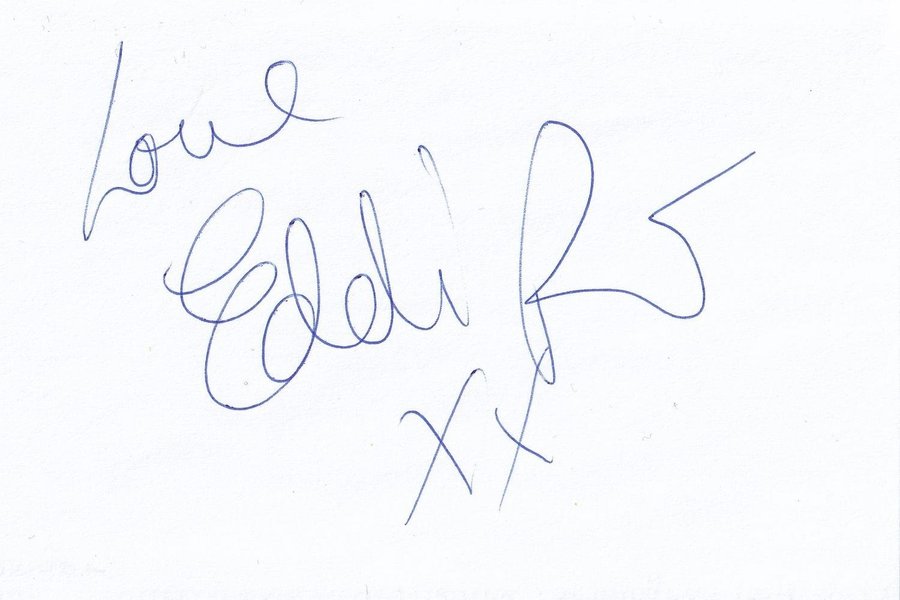 Love
Eddi
xx